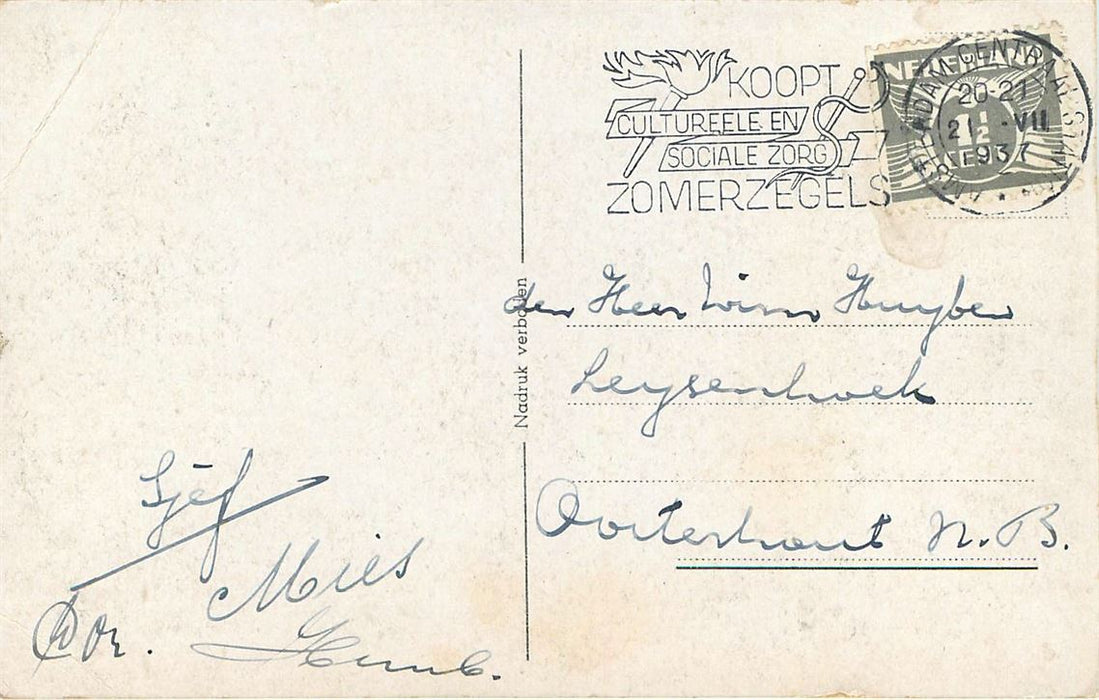 KOOPT
CULTUREELE EN
SOCIALE ZORG
ZOMERZEGELS
NEDERLAND
1½
AMSTERDAM CENTRAAL STATION
20-21
21 -VII
1937
Nadruk verboden
den Heer Wim Huyben
Leysenhoek
Oosterhout N.B.
Sjef
Mies
Cor.
Humb.